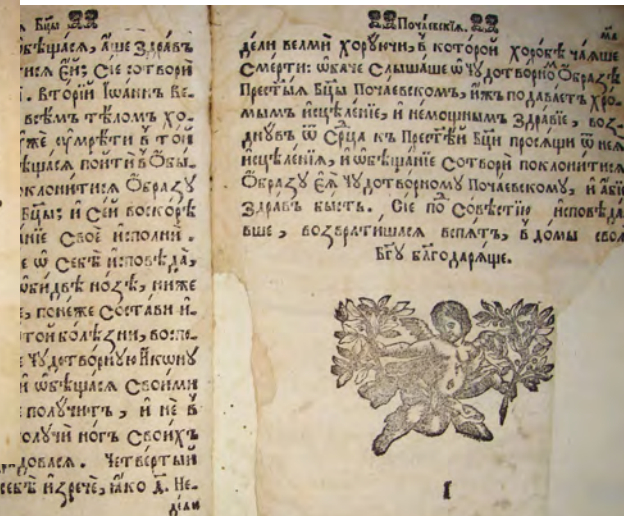 Бцы
бѣщася, аще Здравъ
тися Ей: Сіе сотвори
. вторїй Іѡаннъ Ве-
всѣмъ тѣломъ хо-
уже оумрѣти в той
ѣщася пойти в Ѻбы-
оклонитися Ѻбразу
Бцы: и Сей воскорѣ
нїе Своѐ исполни.
е ѿ Себѣ исповѣда,
ѡбидвѣ нозѣ, ниже
, понеже Состави и-
той болѣзни, воспо-
Чудотворную Икѡну
и ѡбѣщася Своими
получитъ, и не в
олучи ногъ Своихъ
довася. Четвертый
себѣ изрече, ꙗко д҃. Не-
дѣли
Почаевскїя.
дели велми хоруючи, в которой хоробѣ чаяше
Смерти: ѡбаче Слышаше ѡ Чудотворно Ѻбразѣ
Престыя Бцы Почаевскомъ, ижъ подаваетъ хро-
мымъ исцѣленїе, и немощнымъ Здравїе, воз-
днувъ ѿ Срца къ Престѣй Бци просящи ѿ нея
исцѣленїя, и ѡбѣщанїе Сотвори поклонитися
Ѻбразу Ея Чудотворному Почаевскому, и абїе
Здравъ бысть. Сїе по Совѣстїю исповѣда
вше, возвратишася вспять, в домы своя
Бгу благодаряще.
I